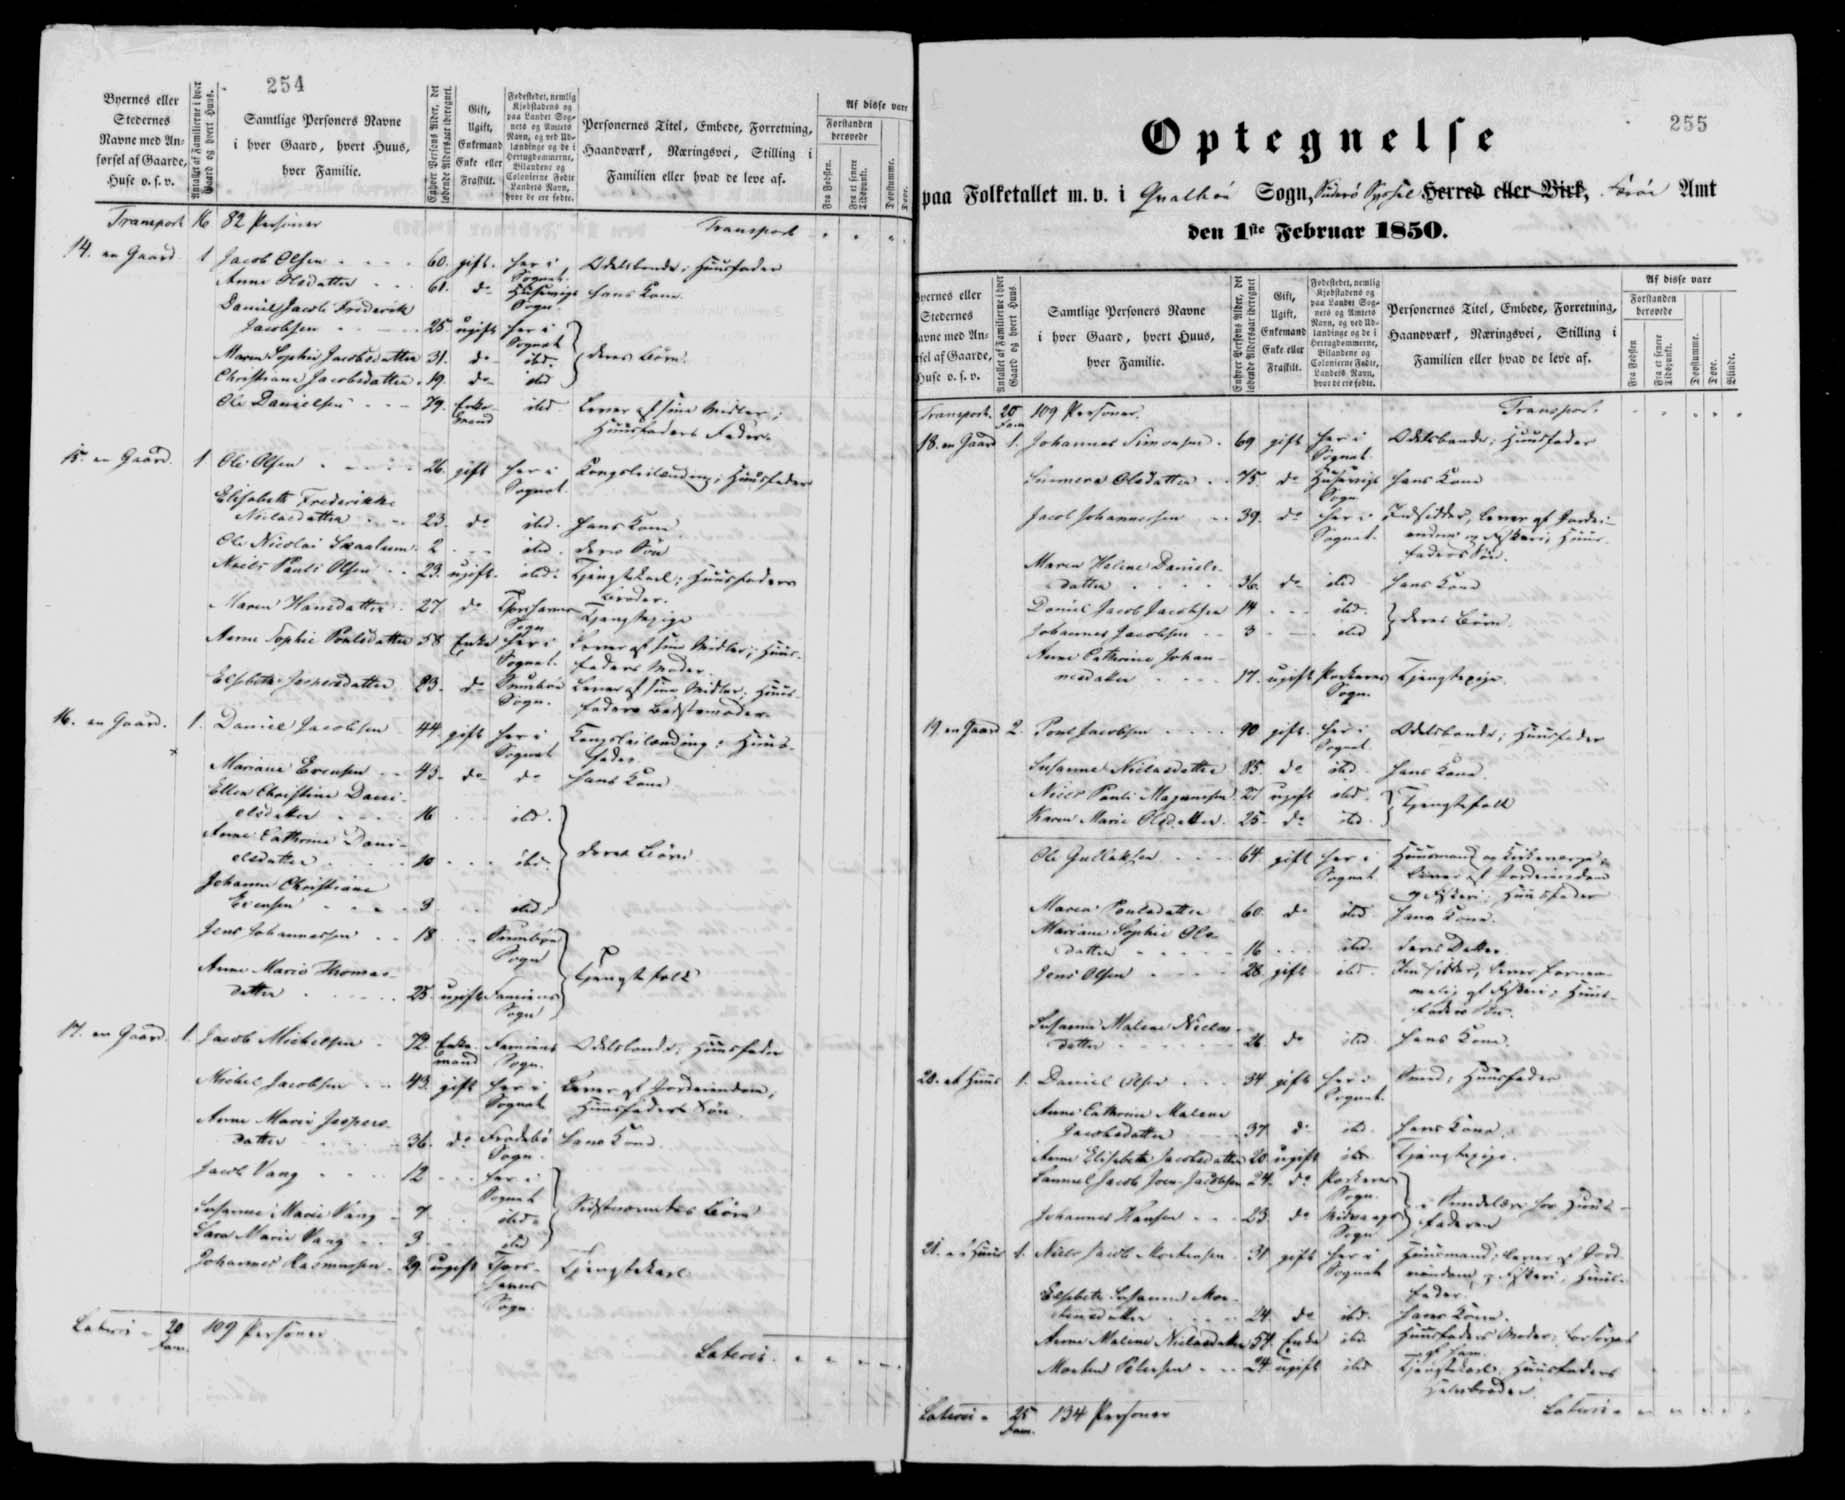 254
Byernes eller
Stedernes
Navne med An-
førsel af Gaarde,
Huse o. s. v.
Antallet af Familierne i hver
Gaard og hvert Huus.
Samtlige Personers Navne
i hver Gaard, hvert Huus,
hver Familie.
Enhver Persons Alder, det
løbende Aldersaar iberegnet.
Gift,
Ugift,
Enkemand
Enke eller
Fraskilt.
Fødestedet, nemlig
Kjøbstadens og
paa Landet Sog-
nets og Amtets
Navn, og ved Ud-
lændinge og de i
Hertugdømmerne,
Bilandene og
Colonierne Fødte
Landets Navn,
hvor de ere fødte.
Personernes Titel, Embede, Forretning,
Haandværk, Næringsvei, Stilling i
Familien eller hvad de leve af.
Af disse vare
Forstanden
berøvede
Fra Fødslen.
Fra et senere
Tidspunkt.
Døvstumme.
Døve.
Transport 16 82 Personer Transport
14. en Gaard 1 Jacob Olsen 60. gift. her i Odelsbonde; Huusfader
Sognet.
Anne Olsdatter 61. do Husevigs hans Kone.
Sogn.
Daniel Jacob Frederik
Jacobsen 25 ugift her i
Sognet
Maren Sophie Jacobsdatter 31. do ibd. deres Børn.
Christiane Jacobsdatter 19. do ibd
Ole Danielsen 79. Enke- ibd. Lever af sine Midler;
mand Huusfaders Fader.
15. en Gaard. 1 Ole Olsen 26. gift her i Kongsleilænding; Huusfader
Sognet.
Elisabeth Frederikke
Niclasdatter 23. do ibd. hans Kone.
Ole Nicolai 2 ibd. deres Søn
Niels Pauli Olsen 23. ugift. ibd. Tjenestekarl; Huusfaders
Broder.
Maren Hansdatter 27. do Thorshavns Tjenestepige
Sogn
Anne Sophie Poulsdatter 58 Enke her i Lever af sine Midler; Huus-
Sognet. faders Moder.
Elsebeth Jespersdatter 83. do Sumbøe Lever af sine Midler; Huus-
Sogn. faders Bedstemoder.
16. en Gaard. 1. Daniel Jacobsen 44 gift her i Kongsleilænding; Huus-
Sognet fader.
Mariane Evensen 43. do do hans Kone
Ellen Christine Dani-
elsdatter 16 ibd.
Anne Cathrine Dani-
elsdatter 10 ibd. deres Børn.
Johanne Christiane
Evensen 3 ibd.
Jens Johannessen 18 Sumbøe
Sogn
Anne Marie Thomas-
datter 25. ugift Famiens Tjenestefolk
Sogn
17. en Gaard 1. Jacob Michelsen 72. Enke- Famiens Odelsbonde; Huusfader
mand Sogn.
Michel Jacobsen 43. gift her i Lever af Jordeiendom;
Sognet Huusfaders Søn
Anne Marie Jespers-
datter 36. do Frodebø hans Kone.
Sogn.
Jacob Vang 12 her i
Sognet
Susanne Marie Vang 7 ibd. Sidstnævntes Børn
Sara Marie Vang 3 ibd
Johannes Rasmussen 29. ugift Thors- Tjenestekarl
havns
Sogn.
Lateris 20 109 Personer
Fam.
Lateris.
255
Optegnelse
paa Folketallet m. v. i Qvalbøe Sogn, Suderø Syssel Herred eller Birk, Færøe Amt
den 1ste Februar 1850.
Byernes eller
Stedernes
Navne med An-
førsel af Gaarde,
Huse o. s. v.
Antallet af Familierne i hver
Gaard og hvert Huus.
Samtlige Personers Navne
i hver Gaard, hvert Huus,
hver Familie.
Enhver Persons Alder, det
løbende Aldersaar iberegnet
Gift,
Ugift,
Enkemand
Enke eller
Fraskilt.
Fødestedet, nemlig
Kjøbstadens og
paa Landet Sog-
nets og Amtets
Navn, og ved Ud-
lændinge og de i
Hertugdømmerne,
Bilandene og
Colonierne Fødte,
Landets Navn,
hvor de ere fødte.
Personernes Titel, Embede, Forretning,
Haandværk, Næringsvei, Stilling i
Familien eller hvad de leve af.
Af disse vare
Forstanden
berøvede
Fra Fødslen
Fra et senere
Tidspunkt.
Døvstumme.
Døve.
Blinde.
Transport. 20 109 Personer. Transport.
Fam
18. en Gaard 1. Johannes Simonsen 69 gift her i Odelsbonde; Huusfader
Sognet.
Olsdatter 75. do Husevigs hans Kone
Sogn
Jacob Johannessen 39. do her i Indsidder, lever af Jordei-
Sognet. endom og Fiskeri; Huus-
faders Søn.
Maren Helene Daniels-
datter 36. do ibd hans Kone
Daniel Jacob Jacobsen 14 ibd. deres Børn.
Johannes Jacobsen 3 ibd
Anne Cathrine Johan-
nesdatter 17. ugift Porkeres Tjenestepige
Sogn.
19. en Gaard 2. Poul Jacobsen 90 gift. her i Odelsbonde; Huusfader
Sognet
Susanne Niclasdatter 85. do ibd. hans Kone.
Niels Pauli Magnussen 21 ugift ibd. Tjenestefolk
Karen Marie Olsdatter. 25. do ibd.
Ole Gulliksen 64 gift her i Huusmand og Kirkeværge,
Sognet. lever af Jordeiendom
og Fiskeri; Huusfader
Maren Poulsdatter 60. do ibd hans Kone.
Mariane Sophie Ols-
datter 16 ibd. deres Datter.
Jens Olsen 28. gift ibd. Indsidder, lever fornem-
melig af Fiskeri; Huus-
faders Søn.
Susanne Malene Niclas-
datter 26. do ibd. hans Kone.
20. et Huus 1. Daniel Olsen 34 gift her i Smed; Huusfader
Sognet.
Anne Cathrine Malene
Jacobsdatter 37 do ibd. hans Kone.
Anne Elisabeth Jacobsdatter 20 ugift ibd. Tjenestepige.
Samuel Jacob Joen Jacobsen 24. do Porkeres
Sogn. i Smedelære hos Huus-
Johannes Hansen 23 do faderen
Sogn
21. et Huus 1. Niels Jacob Mortensen 31 gift her i Huusmand; lever af Jord-
Sognet eiendom og Fiskeri, Huus-
fader
Elsebeth Susanne Mor-
tensdatter 24. do ibd. hans Kone.
Anne Malene Niclasdatter 54. Enke ibd Huusfaders Moder; forsørges
af ham.
Morten Petersen 24 ugift ibd Tjenestekarl; Huusfaders
Halvbroder.
Lateris 25 134 Personer Lateris
Fam.